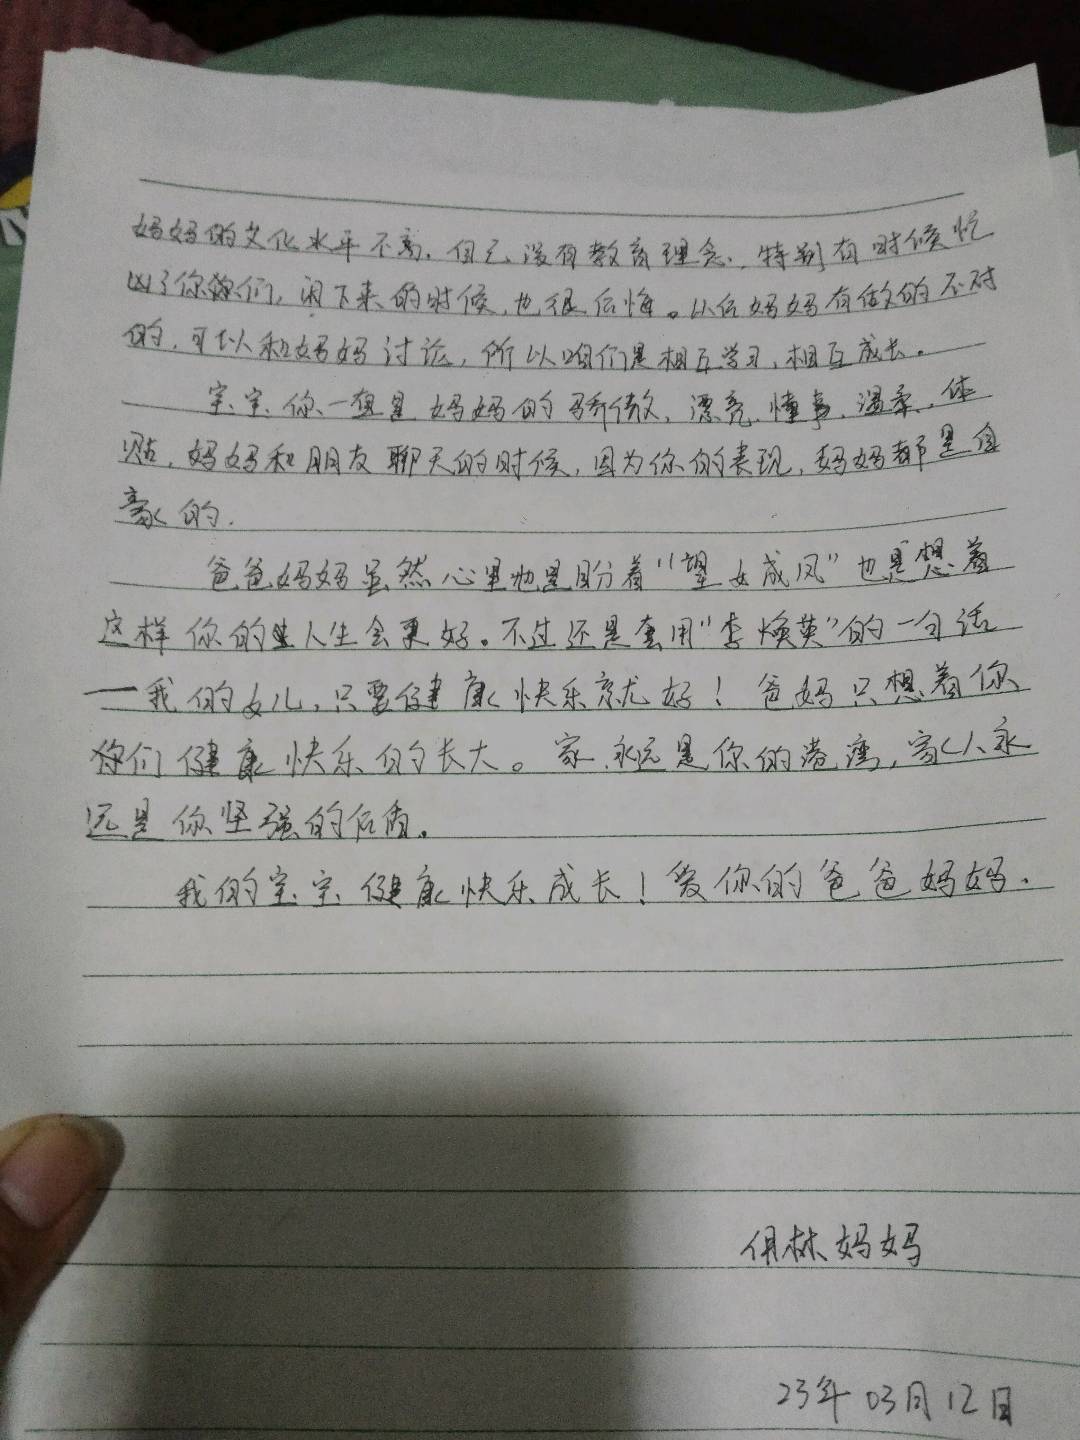 妈妈的文化水平不高。自己没有教育理念，特别有时候忙
凶了你们，闲下来的时候，也很后悔。以后妈妈有做的不对
的，可以和妈妈讨论，所以咱们是相互学习，相互成长。
宝宝你一直是妈妈的骄傲，漂亮、懂事、温柔、体
贴，妈妈和朋友聊天的时候，因为你的表现，妈妈都是自
豪的。
爸爸妈妈虽然心里也是盼着“望女成凤”也是想着
这样你的人生会更好。不过还是套用“李焕英”的一句话
——我的女儿，只要健康快乐就好！爸妈只想着你
你们健康快乐的长大。家永远是你的港湾，家人永
远是你坚强的后盾。
我的宝宝健康快乐成长！爱你的爸爸妈妈.
林妈妈
23年03月12日